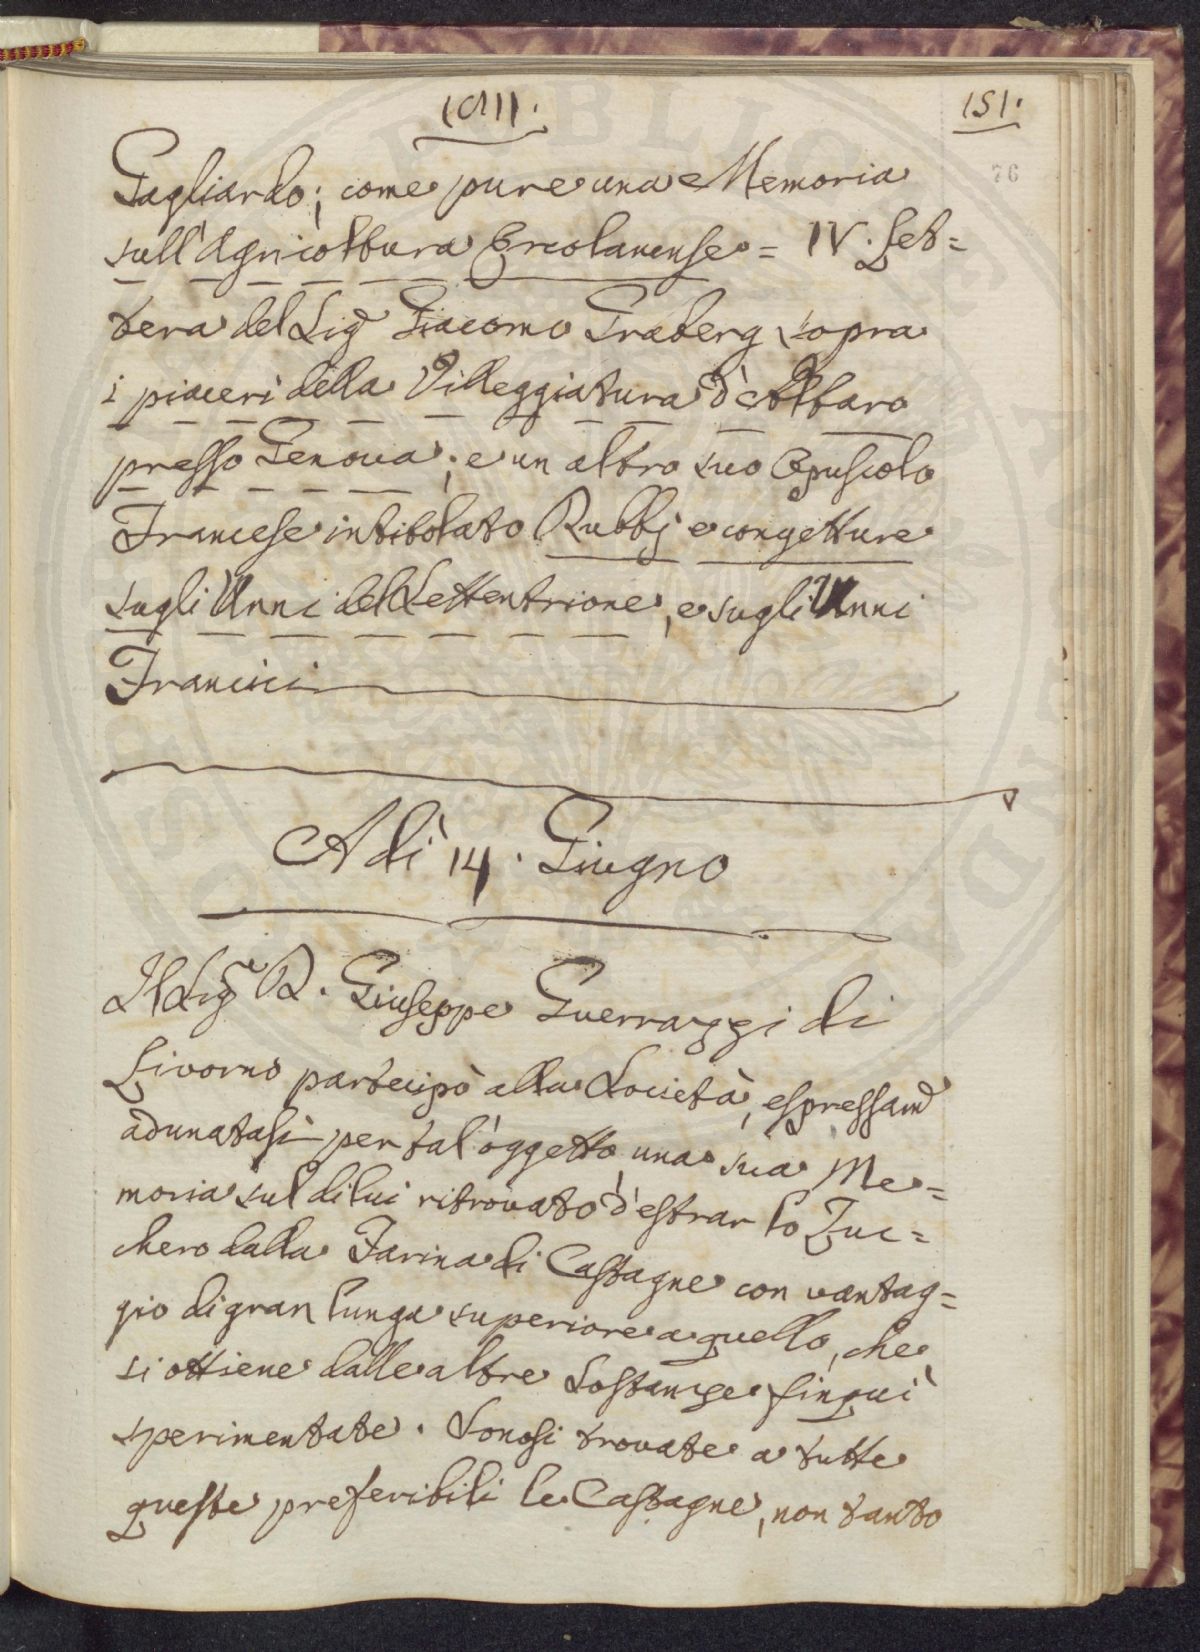 151.
76
Gagliardo; come pure una Memoria
sull'Agricoltura Ercolanense = IV. Let=
tera del Sig.r Giacomo Graberg sopra
i piaceri della Villeggiatura d'Albaro
presso Genova; e un altro suo Opuscolo
Francese intitolato Dubbj e congetture
sugli Unni del Settentrione, e sugli Unni
Francici
A dì 14. Giugno
Il Sig.e D. Giuseppe Guerrazzi di
Livorno partecipò alla Società, espressam.e
adunatasi per tal'oggetto una sua Me=
moria sul di lui ritrovato d'estrar lo Zuc=
chero dalla Farina di Castagne con vantag=
gio di gran lunga superiore a quello, che
si ottiene dalle altre Sostanze finquì
sperimentate. Sonosi trovate a tutte
queste preferibili le Castagne, non tanto